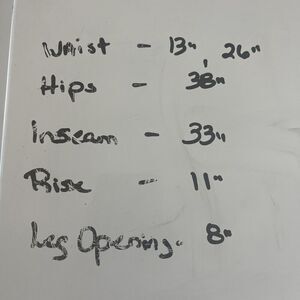 Waist - 13" , 26"
Hips - 38"
Inseam - 33"
Rise - 11"
Leg Opening - 8"